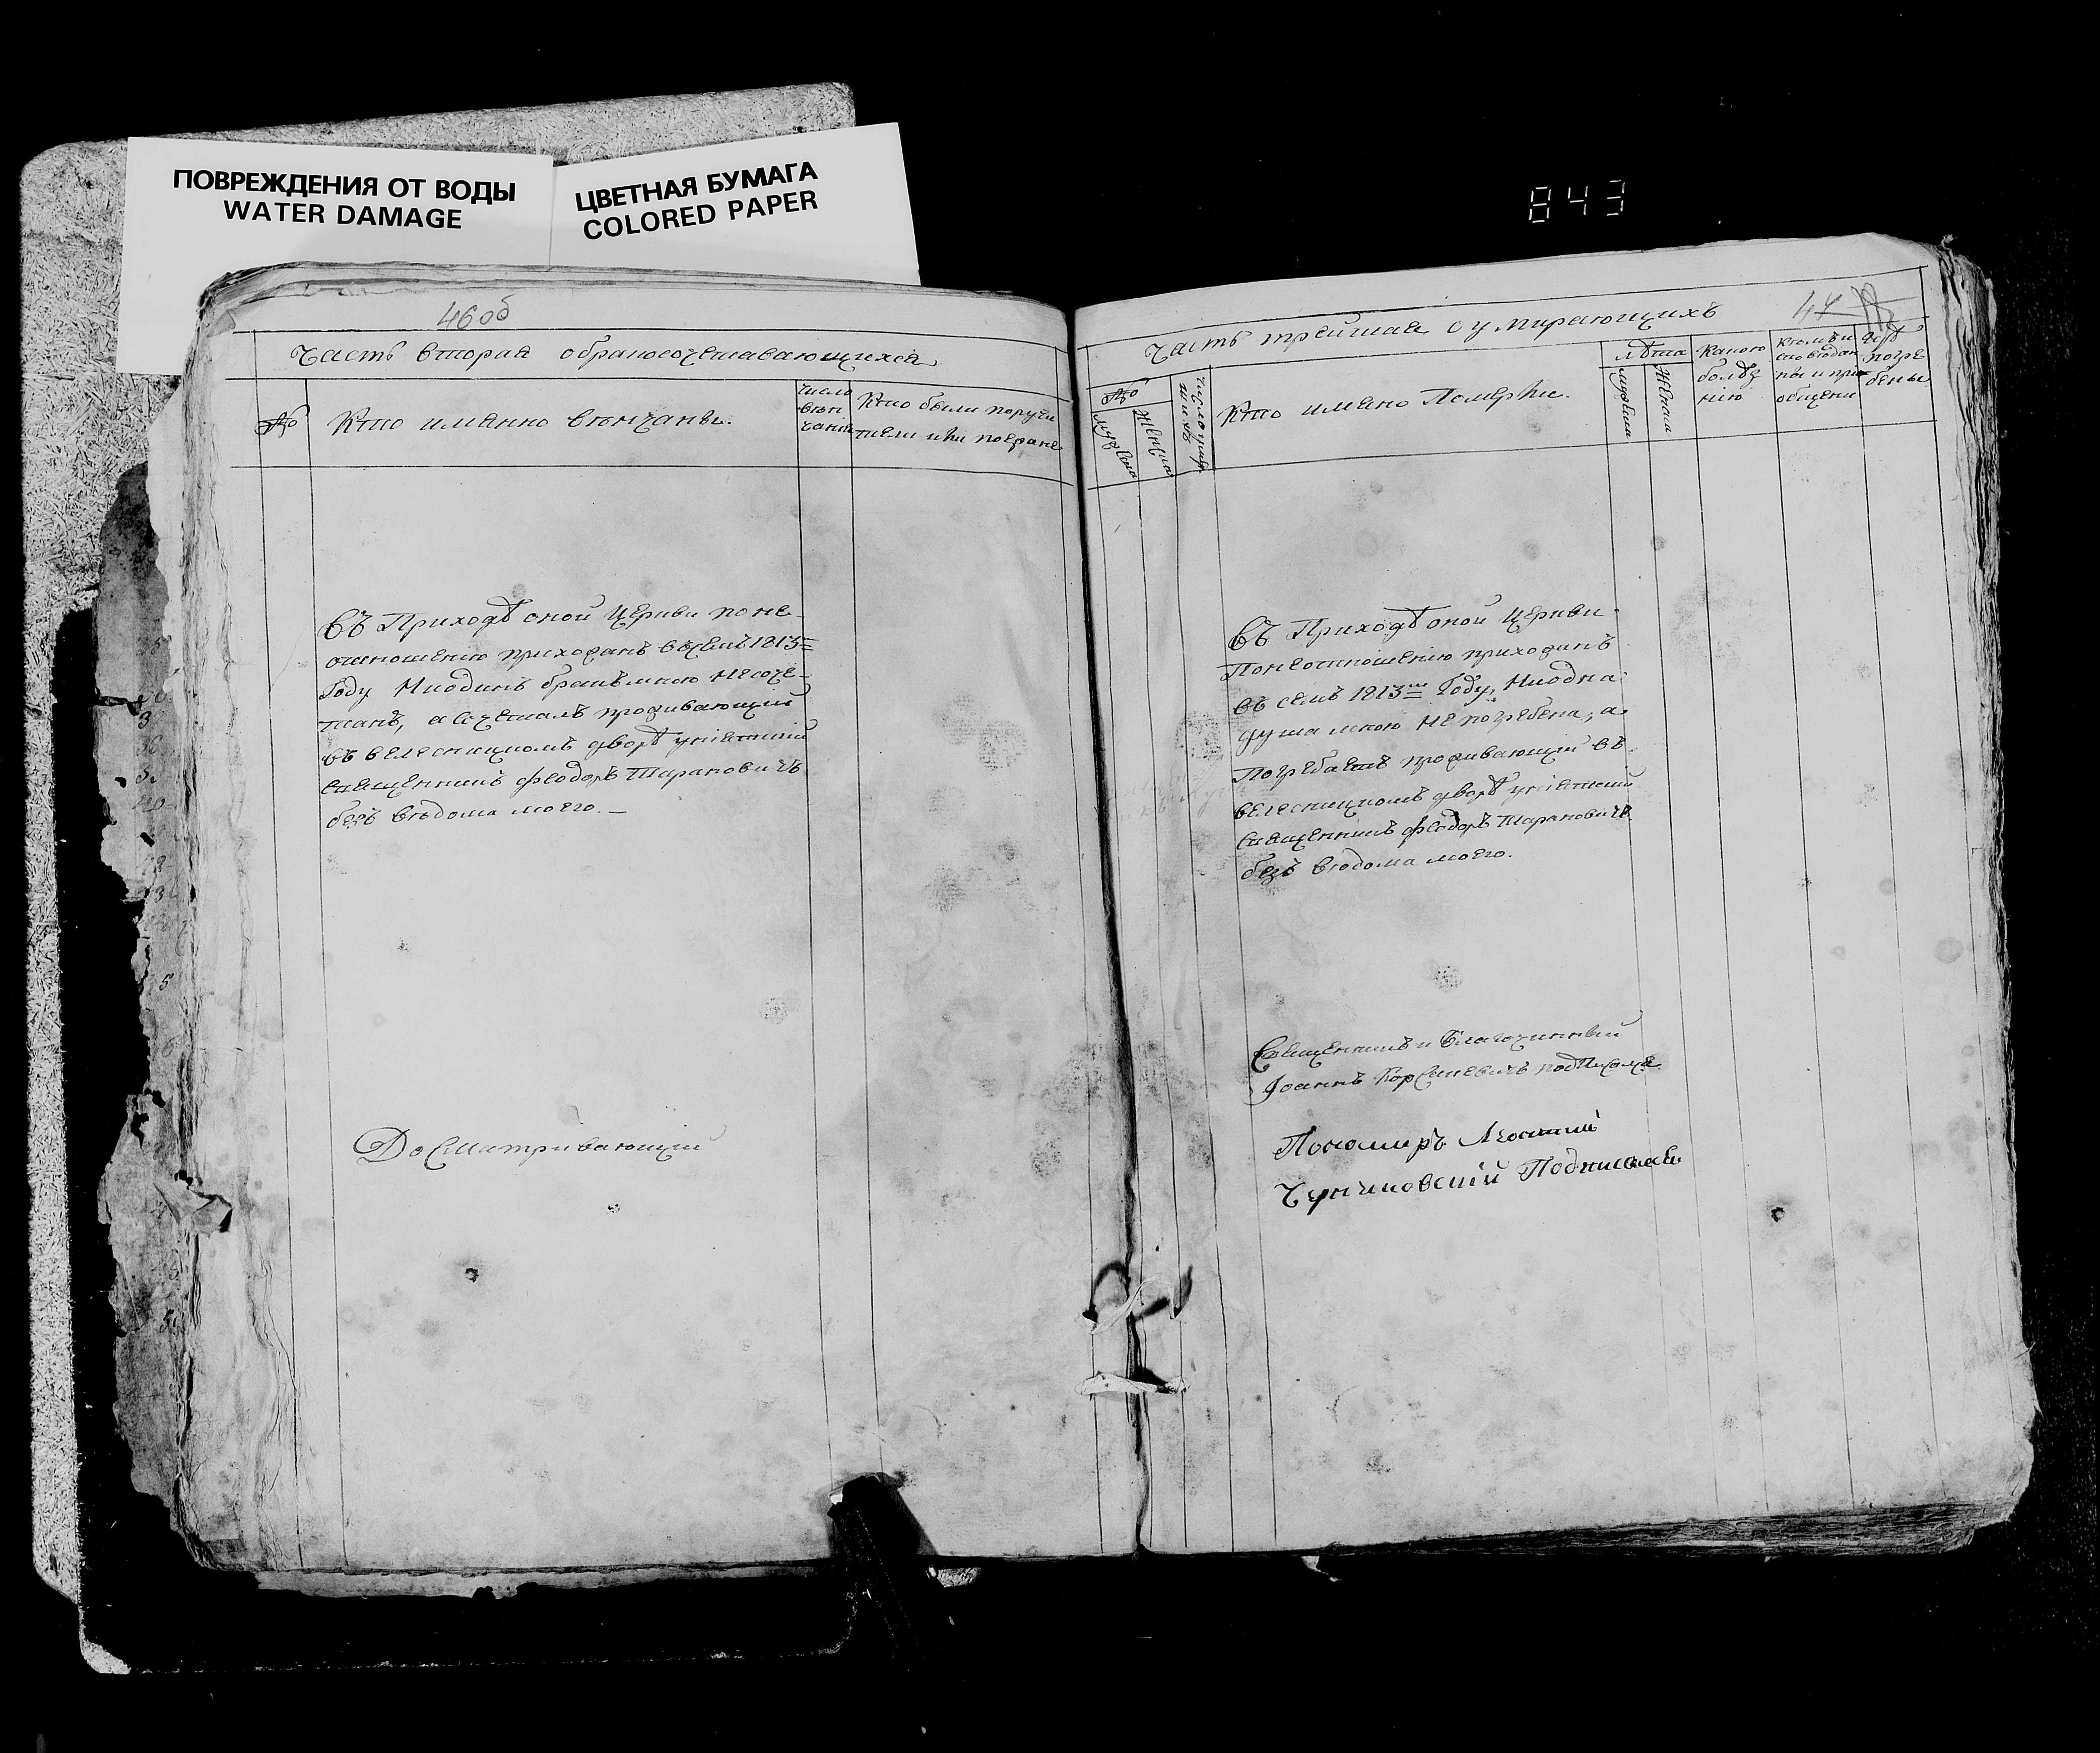 ПОВРЕЖДЕНИЯ ОТ ВОДЫ
WATER DAMAGE
ЦВЕТНАЯ БУМАГА
COLORED PAPER
843
46 об
Часть вторая обракосочетавающихся
№
Кто имянно венчаны.
число
вѣн
чания
Кто были поручи
тели или поезжане
Въ Приходѣ оной Церкви по не-
отношению приходанъ въ семъ 1813=
Году Ниодинъ бракъ мною несоче-
танъ, а Сочеталъ проживающий
въ Велесницкомъ дворѣ униятский
священникъ Феодоръ Тарановичъ
безъ вѣдома моего. —
Досматривающий
47
Часть третияя о умирающихъ
№
мужеска
женска
число умер
ших
Кто имяно Померли.
лѣта
мужеска
женска
Какою
болѣз
нию
Кѣм
исповѣдан
ны и при
общены
Где
погре
бены
Въ Приходѣ оной Церкви
Понеотношению приходанъ
въ семъ 1813= Году, Ниодна
душа мною непогребена, а
Погребаетъ проживающий въ
Велесницкомъ дворѣ униятский
священникъ Феодоръ Тарановичъ
безъ вѣдома моего.
Священникъ и Благочинный
Иоаннъ подписался
Пономаръ
Подписался